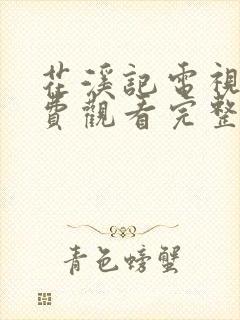 花溪記電視
費觀看完整
青色螃蟹